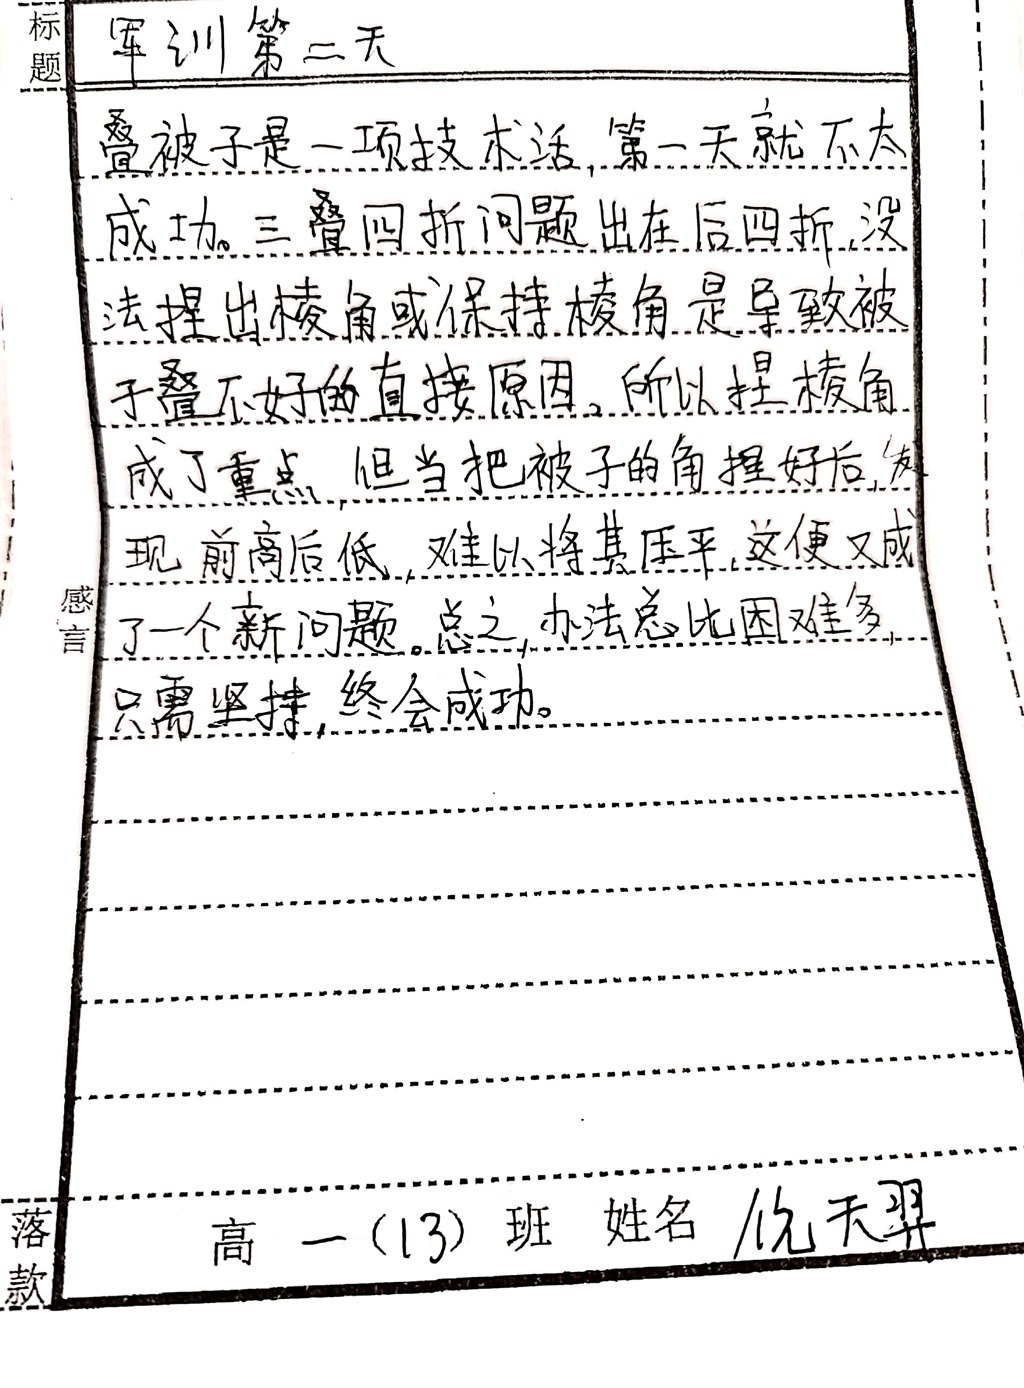 标题 军训第二天
叠被子是一项技术活,第一天就不太
成功。三叠四折问题出在后四折,没
法捏出棱角或保持棱角是导致被
子叠不好的直接原因。所以捏棱角
成了重点,但当把被子的角捏好后,发
现前高后低,难以将其压平,这便又成
感言
了一个新问题。总之,办法总比困难多,
只需坚持,终会成功。
落款 高一(13)班 姓名 倪天羿